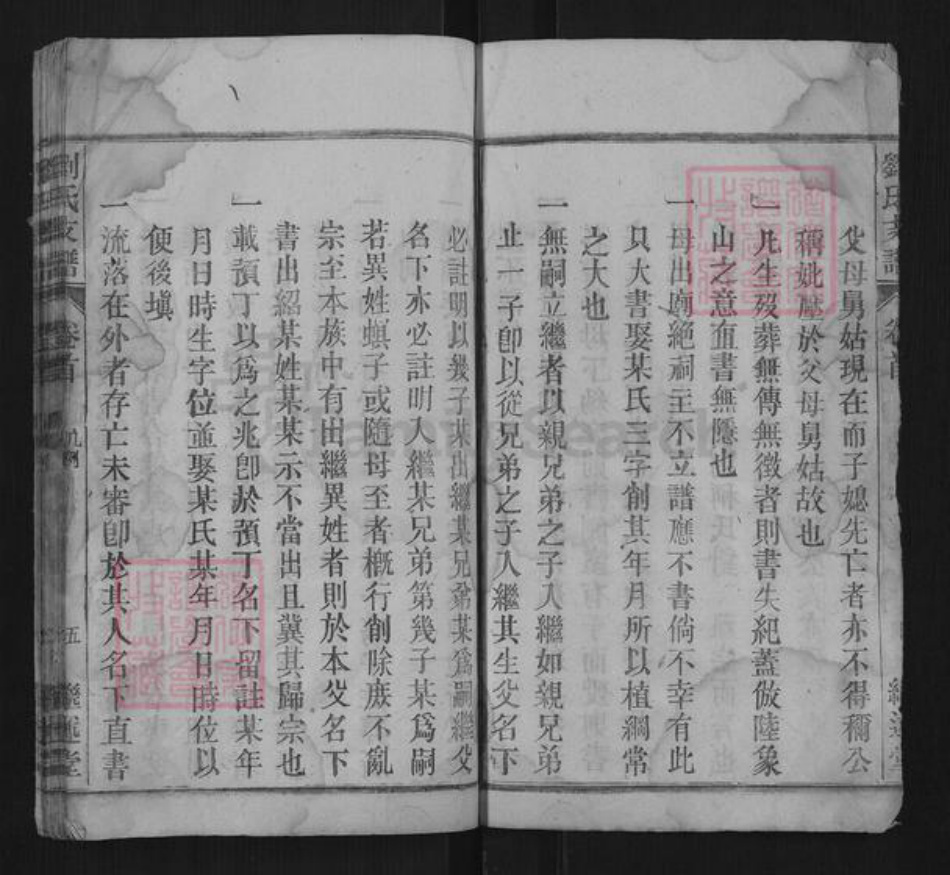 劉氏支譜 卷首
父母舅姑現在而子媳先亡者亦不得稱公
稱妣壓於父母舅姑故也
一凡生歿葬無傳無徵者則書失紀蓋倣陸象
山之意直書無隱也
一母出廟絕祠主不立譜應不書倘不幸有此
只大書娶某氏三字削其年月所以植綱常
之大也
一無嗣立繼者以親兄弟之子入繼如親兄弟
止一子卽以從兄弟之子入繼其生父名下
必註明以幾子某出繼某兄弟某爲嗣繼父
名下亦必註明入繼某兄弟第幾子某爲嗣
若異姓螟子或隨母至者槪行削除庶不亂
宗至本族中有出繼異姓者則於本父名下
書出紹某姓某某示不當出且冀其歸宗也
一載預丁以爲之兆卽於預丁名下留註某年
月日時生字位並娶某氏某年月日時位以
便後塡
一流落在外者存亡未審卽於其人名下直書
劉氏支譜 卷首 凡例 五 繼述堂
FamilySearch